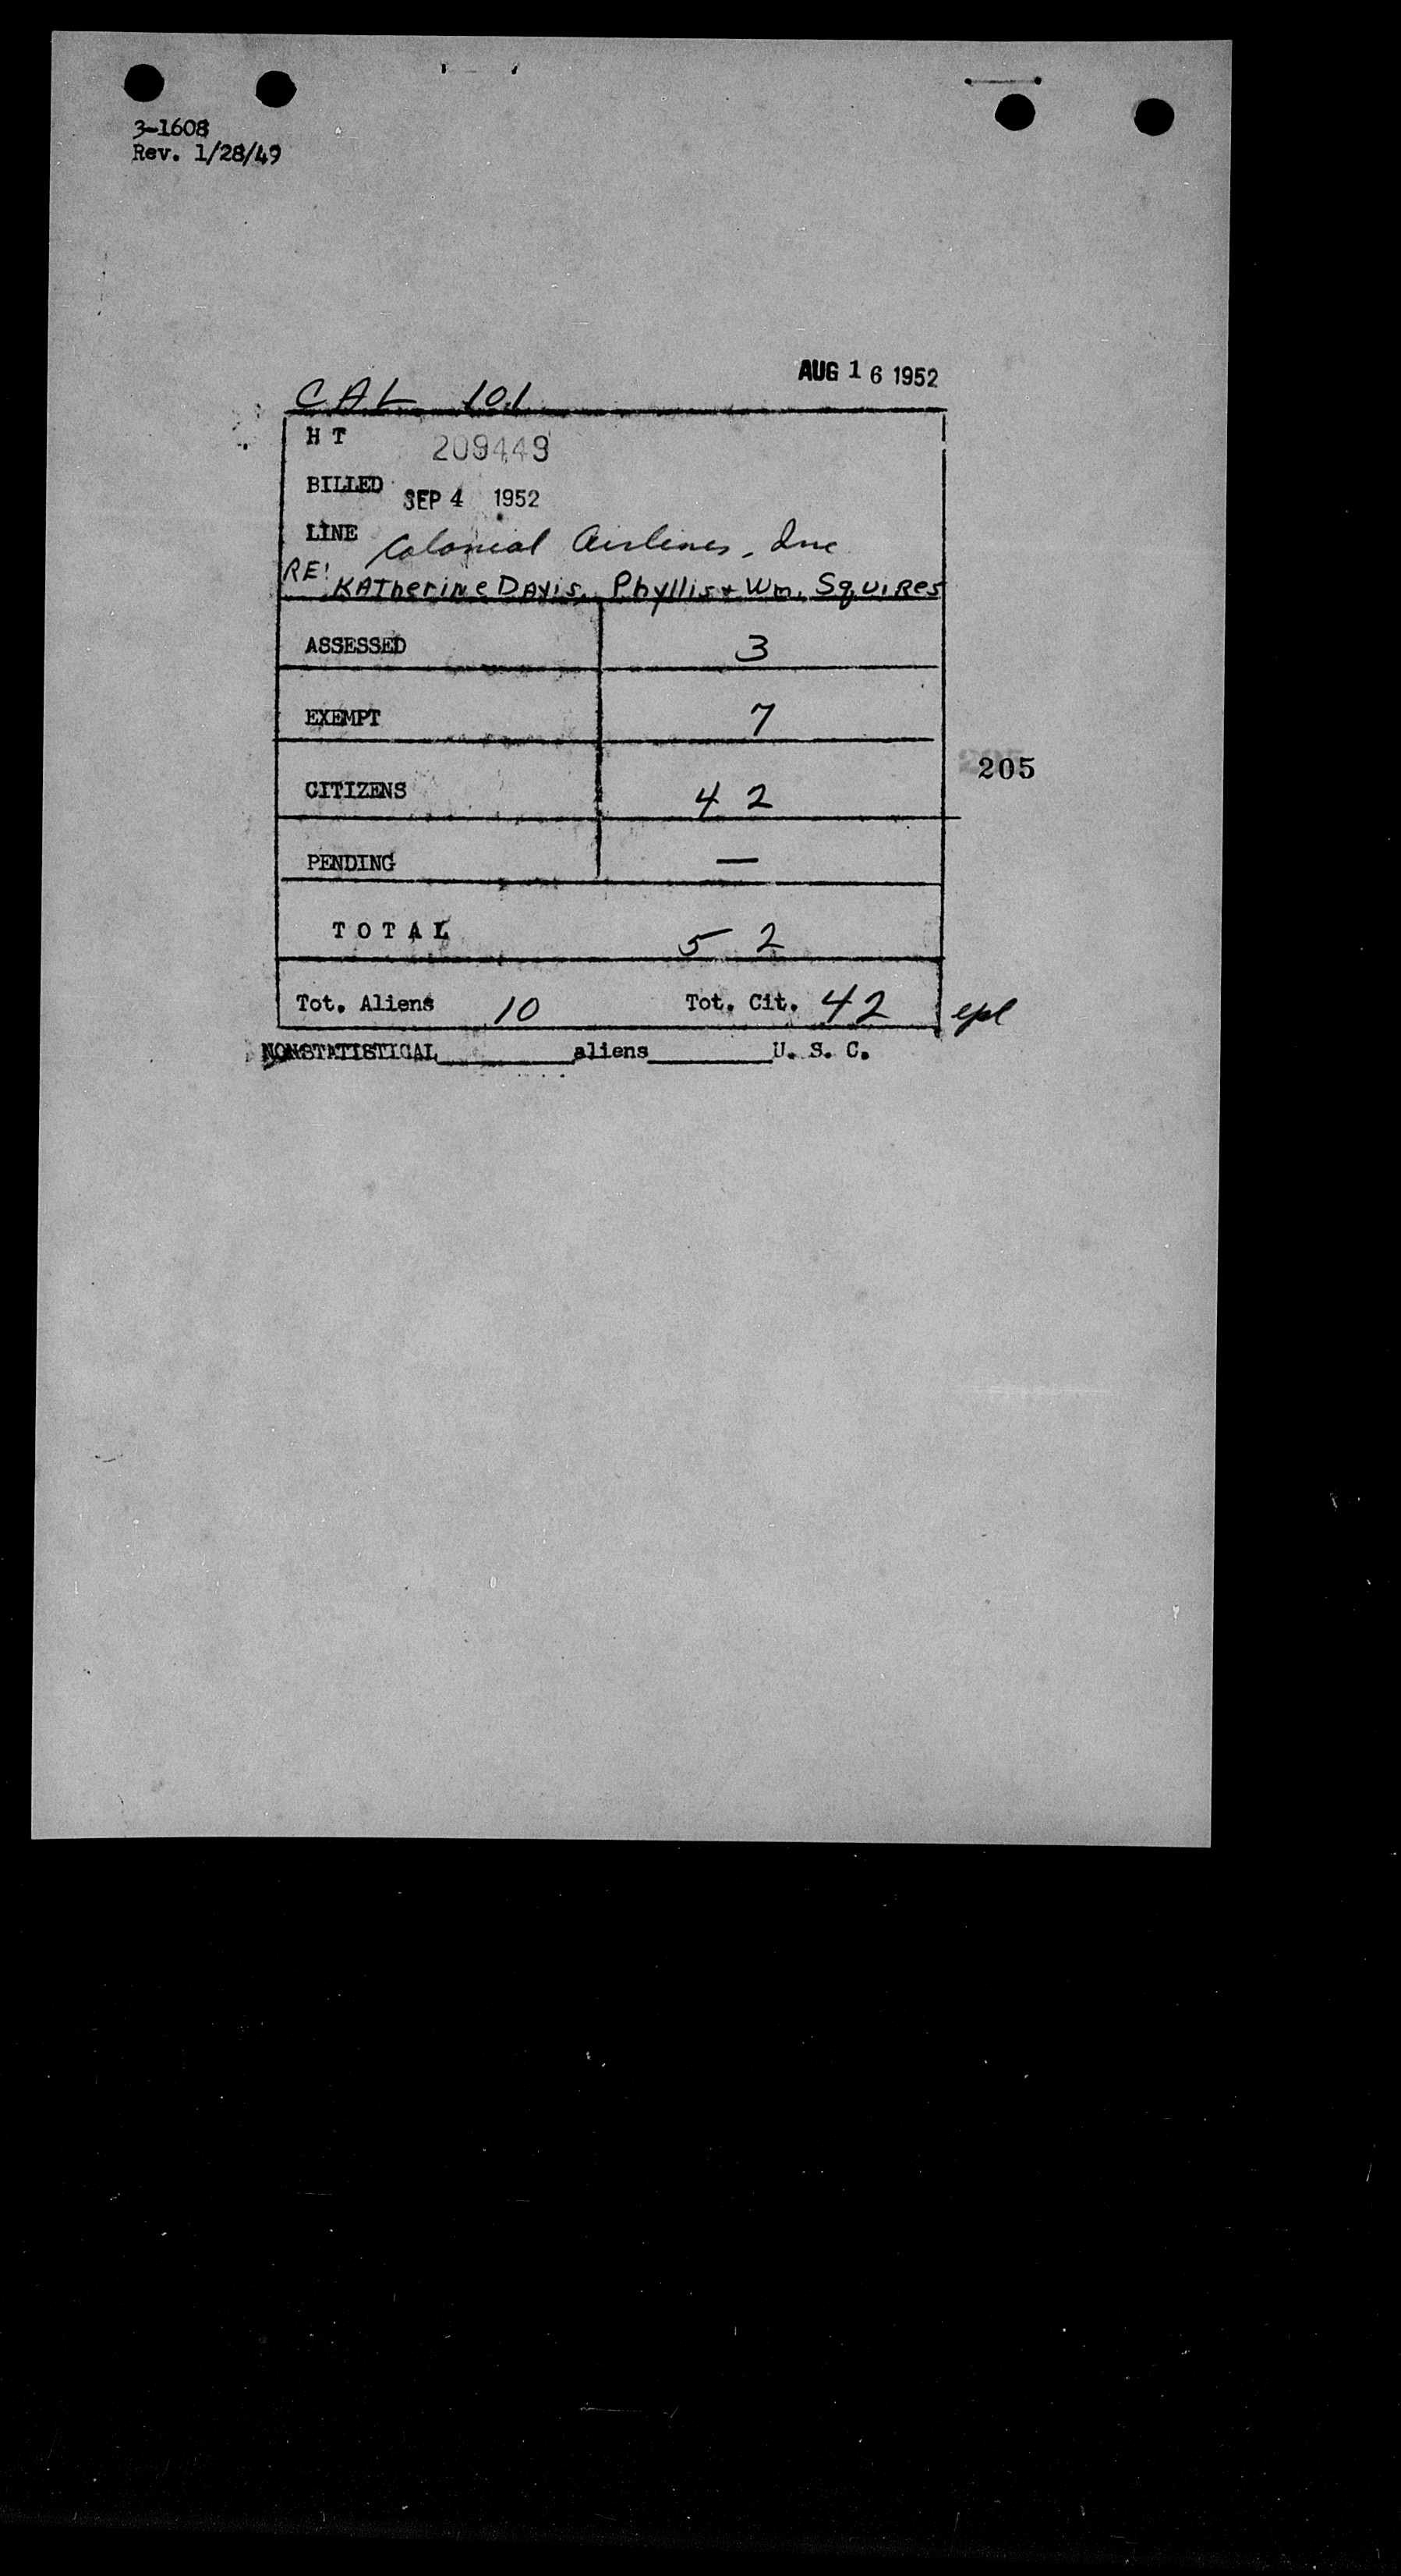 3-1608
Rev. 1/28/49
AUG 16 1952
CAL 101
H T 209449
BILLED SEP 4 1952
LINE Colonial Airlines, Inc
RE: KATherine DAvis, Phyllis + Wm. Squires
ASSESSED 3
EXEMPT 7
205
CITIZENS 42
PENDING —
TOTAL 52
Tot. Aliens 10 Tot. Cit. 42 epl
NONSTATISTICAL________aliens________U. S. C.